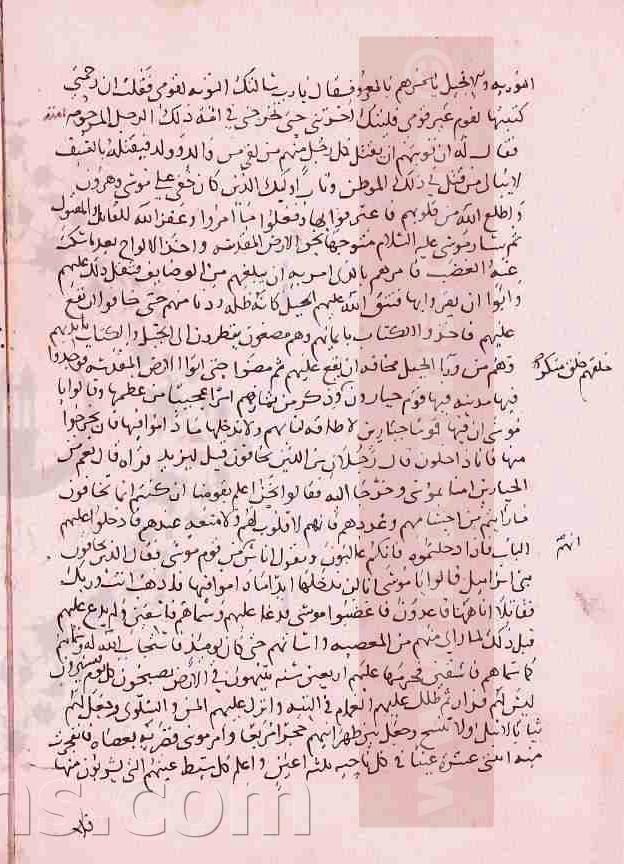 التورىه والانجيل يامرهم بالمعروف فقال يا رب سالتك التوبه لقومي فقلت ان رحمتي
كتبتها لقوم غير قومي فليتك اخرتني حتى تخرجني في امة ذلك الرجل المرحومه
فقال له ان توبتهم ان يقتل كل رجل منهم من لقي من والد وولد فيقتله بالسيف
لا يبالي من قتل في ذلك الموطن وتاب اوليك الذين كان خفي على موسى وهرون
واطلع الله من ذنوبهم فاعترفوا بها وفعلوا ما امروا وغفر الله للقاتل والمقتول
ثم سار موسى عليه السلام متوجها نحو الارض المقدسه واخذ الالواح بعد ما سكت
عنه الغضب فامرهم بالذي امر به ان يبلغهم من الوصايف فثقل ذلك عليهم
وابوا ان يقروا بها فنتق الله عليهم الجبل كانه ظله ودنا منهم حتى خافوا ان يقع
عليهم فاخذوا الكتاب بايمانهم وهم مصغون ينظرون الى الجبل والكتاب بايديهم
وهم من وراء الجبل مخافة ان يقع عليهم ثم مضوا حتى اتوا الارض المقدسه فوجدوا
فيها مدينه فيها قوم جبارون وذكر من ثمارهم امرا عجيبا من عظمها وقالوا يا
خلقهم خلق منكر
موسى ان فيها قوما جبارين لا طاقه لنا بهم ولا ندخلها ما داموا فيها فان يخرجوا
منها فانا داخلون قال رجلان من الذين يخافون قيل ليزيد قراه قال نعم من
الجبارين امنا بموسى وخرجا اليه فقالوا نحن اعلم بقومنا ان كنتم انما تخافون
ما رايتم من اجسامهم وعددهم فانهم لا قلوب لهم ولا منعه عندهم فادخلوا عليهم
الباب فاذا دخلتموه فانكم غالبون ويقول اناس من قوم موسى فقال الذين يخافون
انهم
بني اسرائيل قالوا يا موسى انا لن ندخلها ابدا ما داموا فيها فاذهب انت وربك
فقاتلا انا ههنا قاعدون فاغضبوا موسى فدعا عليهم وسماهم فاسقين ولم يدع عليهم
قبل ذلك لما راى منهم من المعصيه واساتهم حتى كان يوميذ فاستجاب الله له وسماهم
كما سماهم فاسقين فحرمها عليهم اربعين سنه يتيهون في الارض يصبحون كل يوم فيسيرون
ليس لهم قرار ثم ظلل عليهم الغمام في التيه وانزل عليهم المن والسلوى وجعل لهم
ثيابا لا تبلى ولا تتسخ وجعل بين ظهرانيهم حجرا مربعا وامر موسى فضربه بعصاه فانفجرت
منه اثنتي عشرة عينا في كل ناحيه ثلثه اعين واعلم كل سبط عينهم التي يشربون منها
فلا
ns.com